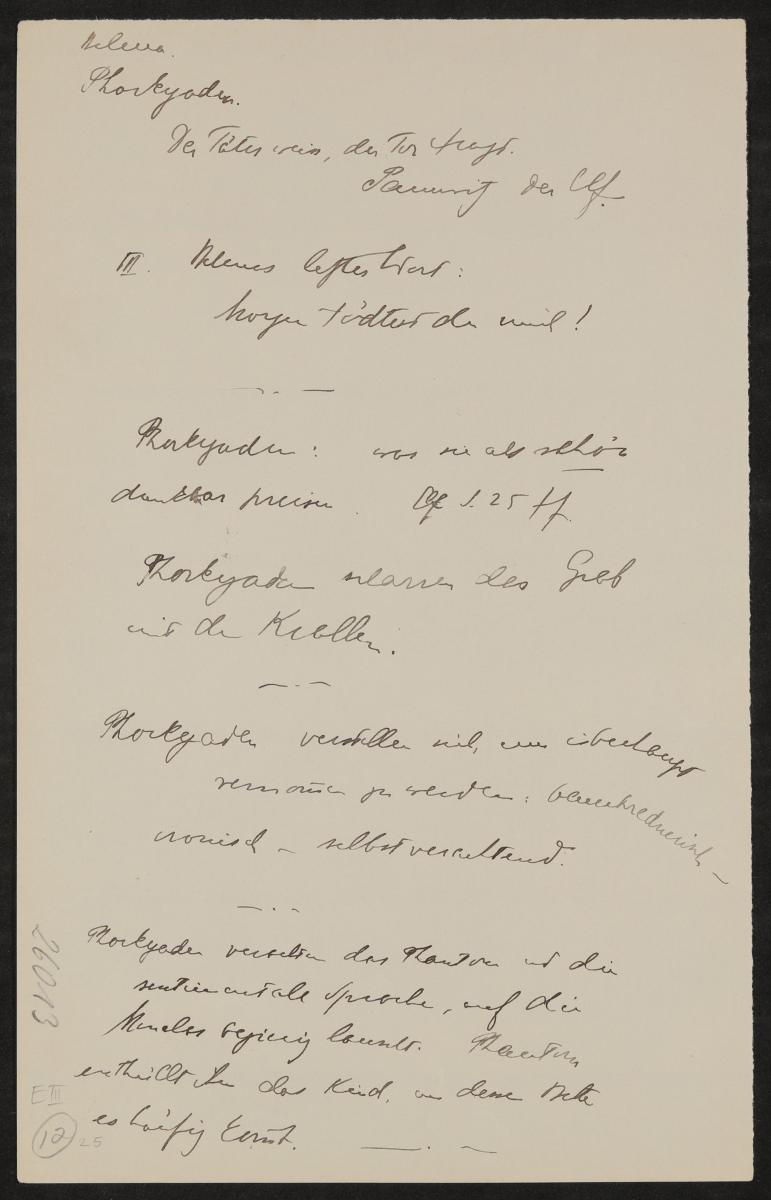 Helena.
Phorkyaden.
Der Täter weiss, der Tor fragt.
der Uf.
III. Helenas letztes Wort:
Morgen tödtest du mich!
Phorkyaden: was sie als schön
dankbar preisen. Uf S. 25 ff.
Phorkyaden scharren das Grab
mit den Krallen.
Phorkyaden verstellen sich, um überhaupt
vernommen zu werden: bauchrednerisch –
ironisch – selbstverachtend.
Phorkyaden verachten das Phantom und die
sentimentale Sprache, auf die
Menelas begierig lauscht. Phantom
enthüllt ihm das Kind, an dessen Bette
es häufig
26013
E III
12
25